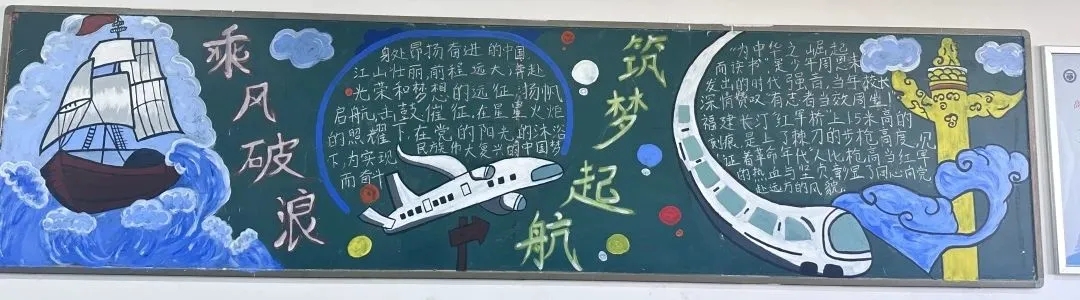 乘风破浪
身处昂扬奋进的中国
江山壮丽,前程远大,奔赴
光荣和梦想的远征,扬帆
启航,击鼓催征,在星星火炬
的照耀下,在党的阳光的沐浴
下,为实现民族伟大复兴的中国梦
而奋斗
筑梦起航
"为中华之崛起
而读书"是少年周恩来
发出的时代强言,当年校长
深情赞叹有志者当效周生!
福建长汀红军桥上1.5米高的
刻痕,是上了刺刀的步枪高度,见
证着革命年代"人比枪高当红军"
的热血与坚贞,彰显了同心向党
赴远方的风貌。